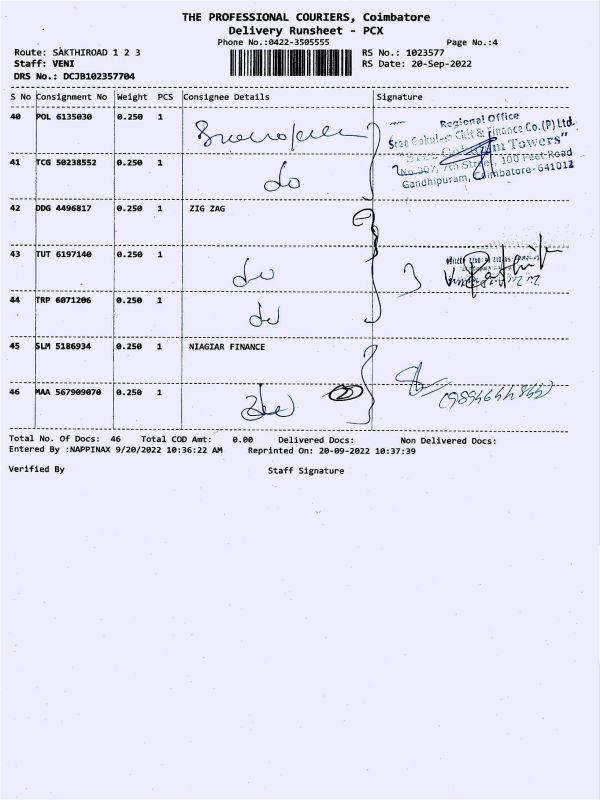 THE PROFESSIONAL COURIERS, Coimbatore
Delivery Runsheet - PCX
Phone No.:0422-3505555 Page No.:4
Route: SAKTHIROAD 1 2 3 RS No.: 1023577
Staff: VENI RS Date: 20-Sep-2022
DRS No.: DCJB102357704
S No Consignment No Weight PCS Consignee Details Signature
40 POL 6135030 0.250 1
Regional Office
Sree Gokulam Chit & Finance Co.(P) Ltd.
"Sree Gokulam Towers"
No.307, 7th Street, 100 Feet Road
Gandhipuram, Coimbatore-641012
41 TCG 50238552 0.250 1 do
42 DDG 4496817 0.250 1 ZIG ZAG
43 TUT 6197140 0.250 1 do
44 TRP 6071206 0.250 1 do
45 SLM 5186934 0.250 1 NIAGIAR FINANCE
46 MAA 567909070 0.250 1 2
Total No. Of Docs: 46 Total COD Amt: 0.00 Delivered Docs: Non Delivered Docs:
Entered By :NAPPINAX 9/20/2022 10:36:22 AM Reprinted On: 20-09-2022 10:37:39
Verified By Staff Signature